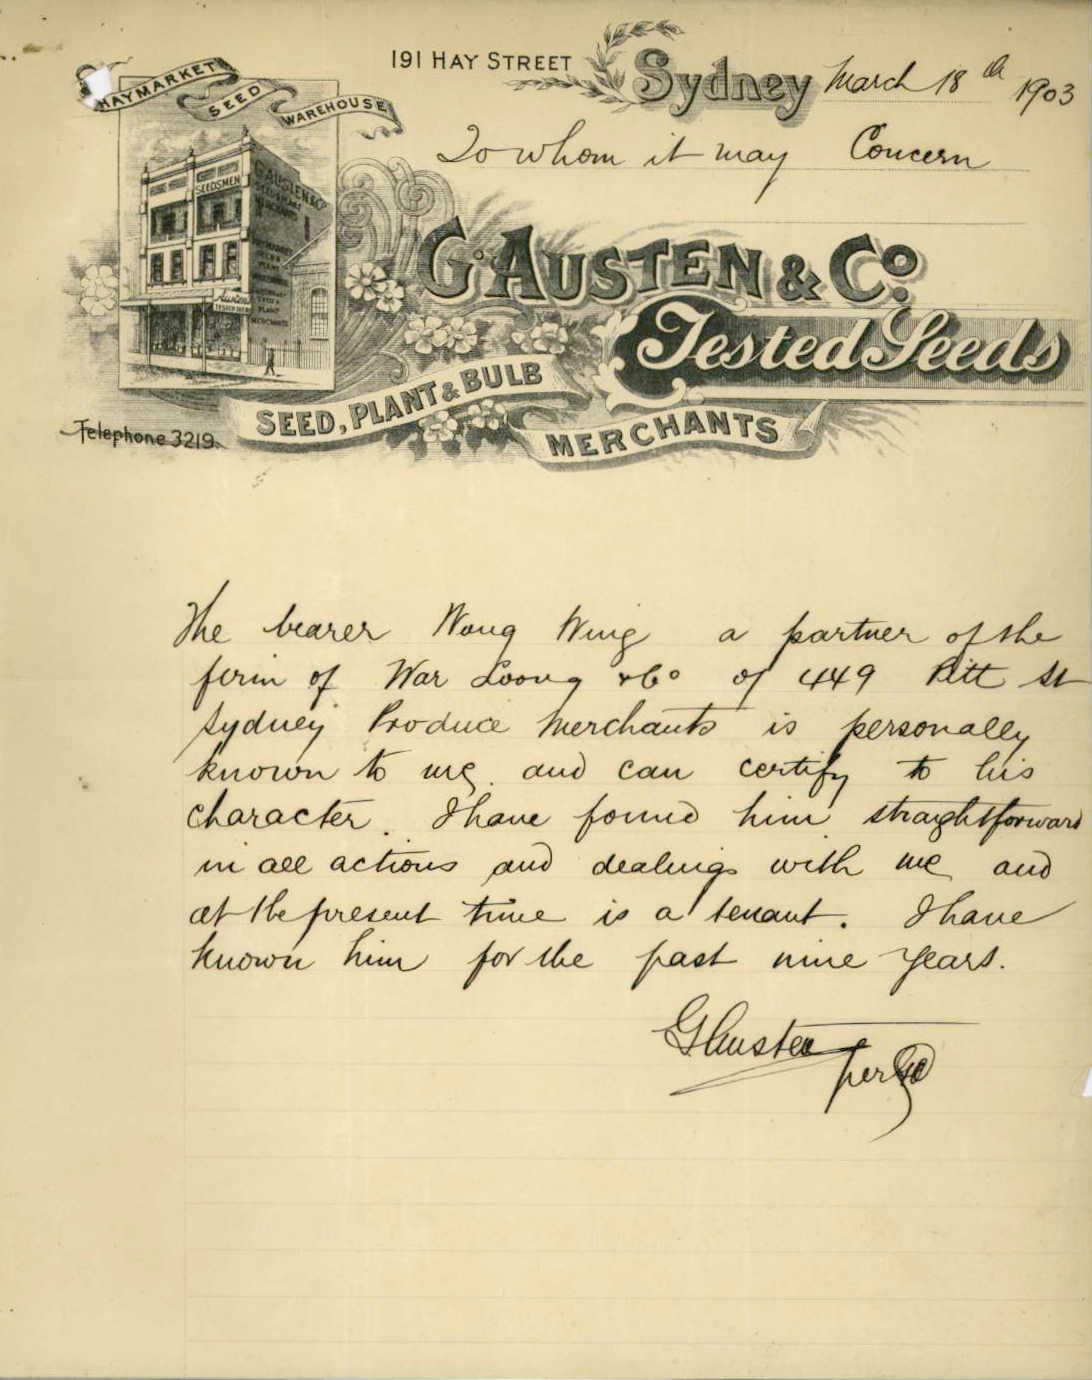 HAYMARKET
SEED
WAREHOUSE
191 HAY STREET
Sydney March 18th 1903
To whom it may Concern
SEEDSMEN
G. AUSTEN & Co.
G. AUSTEN & Co.
Tested Seeds
SEED, PLANT & BULB
MERCHANTS
Telephone 3219.
The bearer Wong Wing a partner of the
firm of War Loong & Co of 449 Pitt St
Sydney Produce Merchants is personally
known to me and can certify to his
character. I have found him straightforward
in all actions and dealings with me and
at the present time is a tenant. I have
known him for the past nine years.
G Austen
per